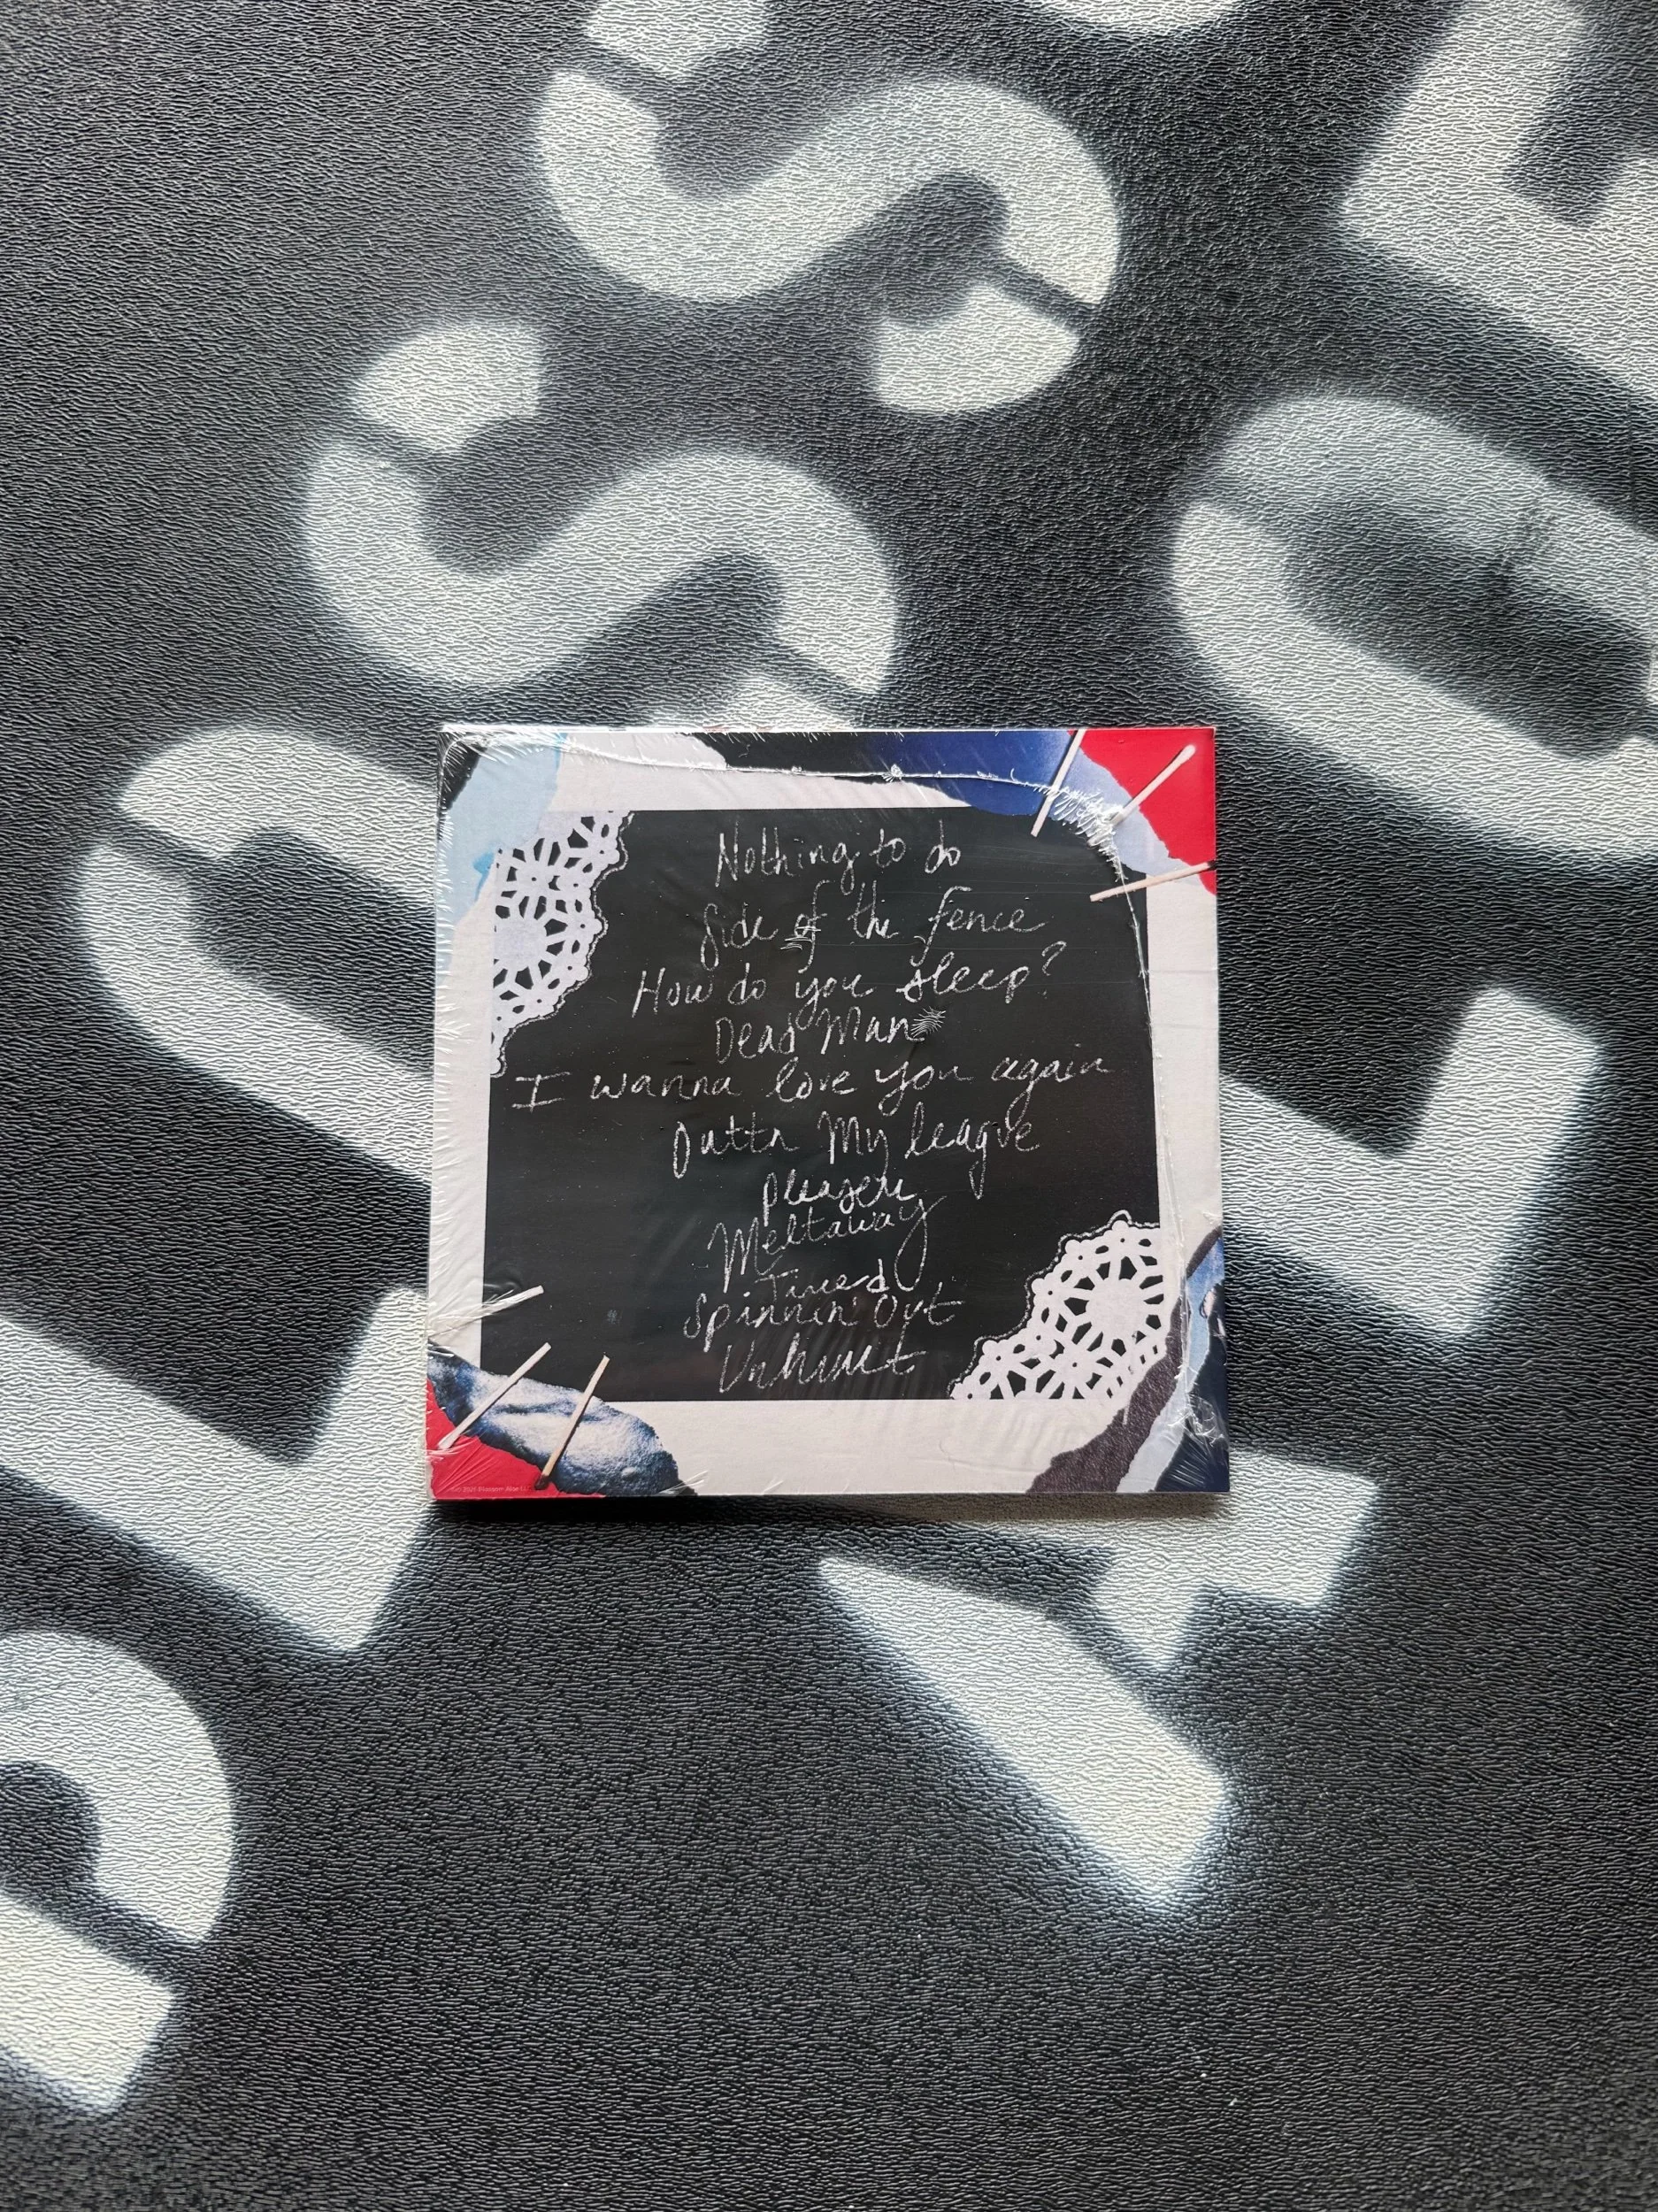 Nothing to do
Side of the fence
How do you sleep?
Dead Man
I wanna love you again
Outta My league
Pleaser
Meltaway
Tired
Spinnin' Out
Unhurt